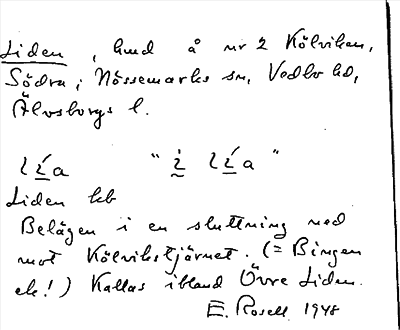 Liden, hmd å nr 2 Kölviken,
Södra, Nössemarks sn, Vedbo hd,
Älvsborgs l.
lía "i lía"
Liden hb
Belägen i en sluttning ned
mot Kölvikstjärnet. (= Bingen
ek!) Kallas ibland Övre Liden.
E. Rosell 1948